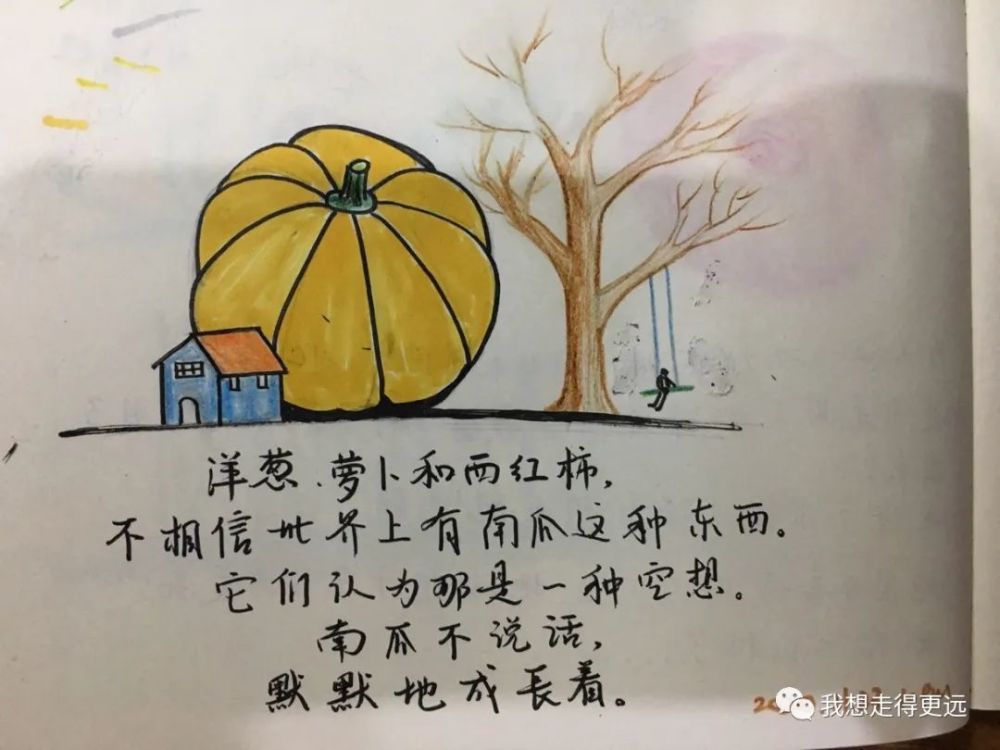 洋葱、萝卜和西红柿,
不相信世界上有南瓜这种东西。
它们认为那是一种空想。
南瓜不说话,
默默地成長着。
我想走得更远